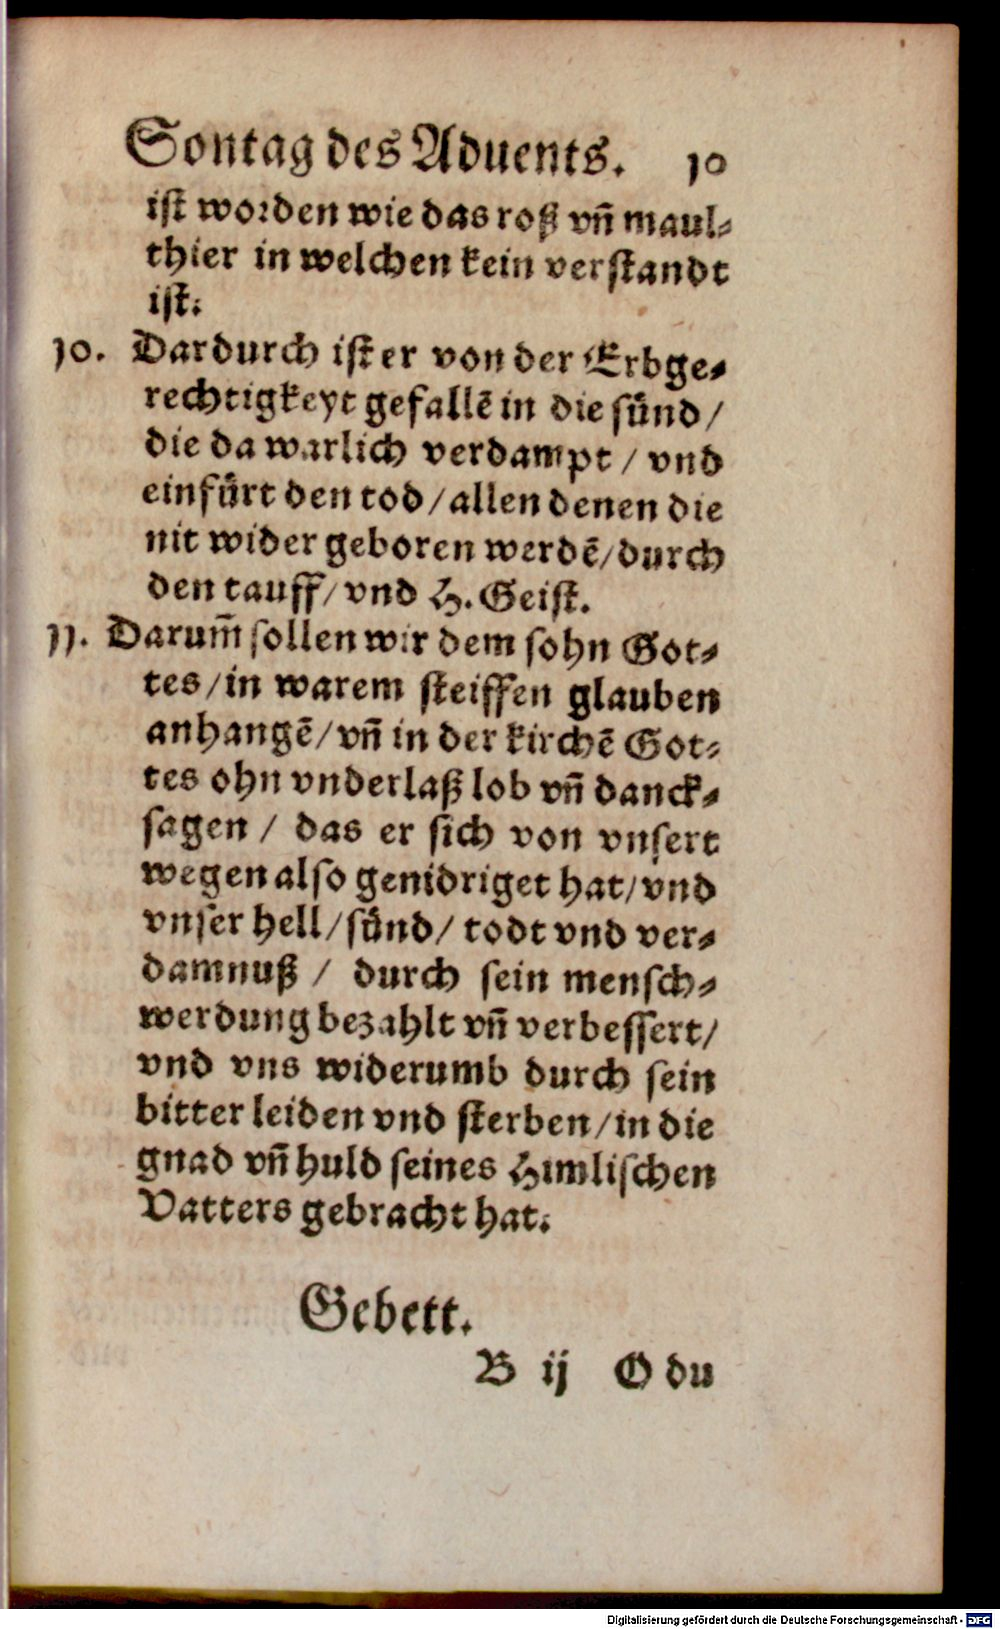 Sontag des Aduents. 10
ist worden wie das roß vñ maul-
thier in welchen kein verstandt
ist.
10. Dardurch ist er von der Erbge-
rechtigkeyt gefallē in die sünd/
die da warlich verdampt / vnd
einfürt den tod/allen denen die
nit wider geboren werdē/durch
den tauff/vnd H. Geist.
11. Darum̄ sollen wir dem sohn Got-
tes/in warem steiffen glauben
anhangē/vñ in der kirchē Got-
tes ohn vnderlaß lob vñ danck-
sagen / das er sich von vnsert
wegen also genidriget hat/vnd
vnser hell/sünd/ todt vnd ver-
damnuß / durch sein mensch-
werdung bezahlt vñ verbessert/
vnd vns widerumb durch sein
bitter leiden vnd sterben/in die
gnad vñ huld seines Himlischen
Vatters gebracht hat.
Gebett.
B ij O du
Digitalisierung gefördert durch die Deutsche Forschungsgemeinschaft - DFG